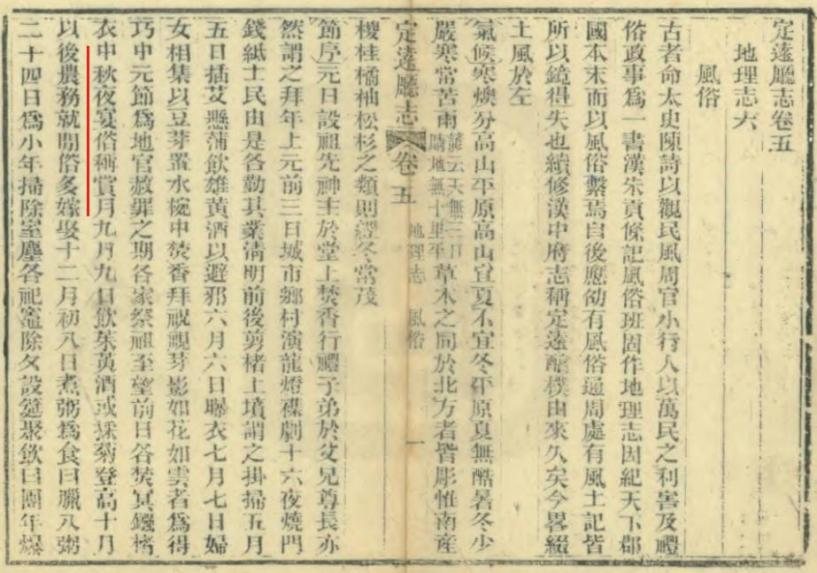 定遠廳志卷五
地理志六
風俗
古者命太史陳詩以觀民風周官小行人以萬民之利害及禮
俗政事為一書漢朱貢條記風俗班固作地理志因紀天下郡
國本末而以風俗繫焉自後應劭有風俗通周處有風土記皆
所以鏡得失也續修漢中府志稱定遠醇樸由來久矣今畧綴
土風於左
氣候寒燠分高山平原高山宜夏不宜冬平原夏無酷暑冬少
嚴寒常苦雨諺云天無三日晴地無十里平草木之同於北方者皆彫惟南産
定遠廳志 卷五 地理志 風俗 一
椶桂橘柚松杉之類則經冬常茂
節序元日設祖先神主於堂上焚香行禮子弟於父兄尊長亦
然謂之拜年上元前三日城市鄉村演龍燈襍劇十六夜燒門
錢紙士民由是各勤其業清明前後剪楮上墳謂之掛掃五月
五日插艾懸蒲飲雄黃酒以避邪六月六日曝衣七月七日婦
女相集以豆芽置水椀中焚香拜祝視芽影如花如雲者為得
巧中元節為地官赦罪之期各家祭祖至望前日各焚冥鏹楮
衣中秋夜宴俗稱賞月九月九日飲茱黃酒或採菊登高十月
以後農務就閒俗多嫁娶十二月初八日煮粥為食曰臘八粥
二十四日為小年掃除室塵各祀竈除夕設筵聚飲曰團年爆